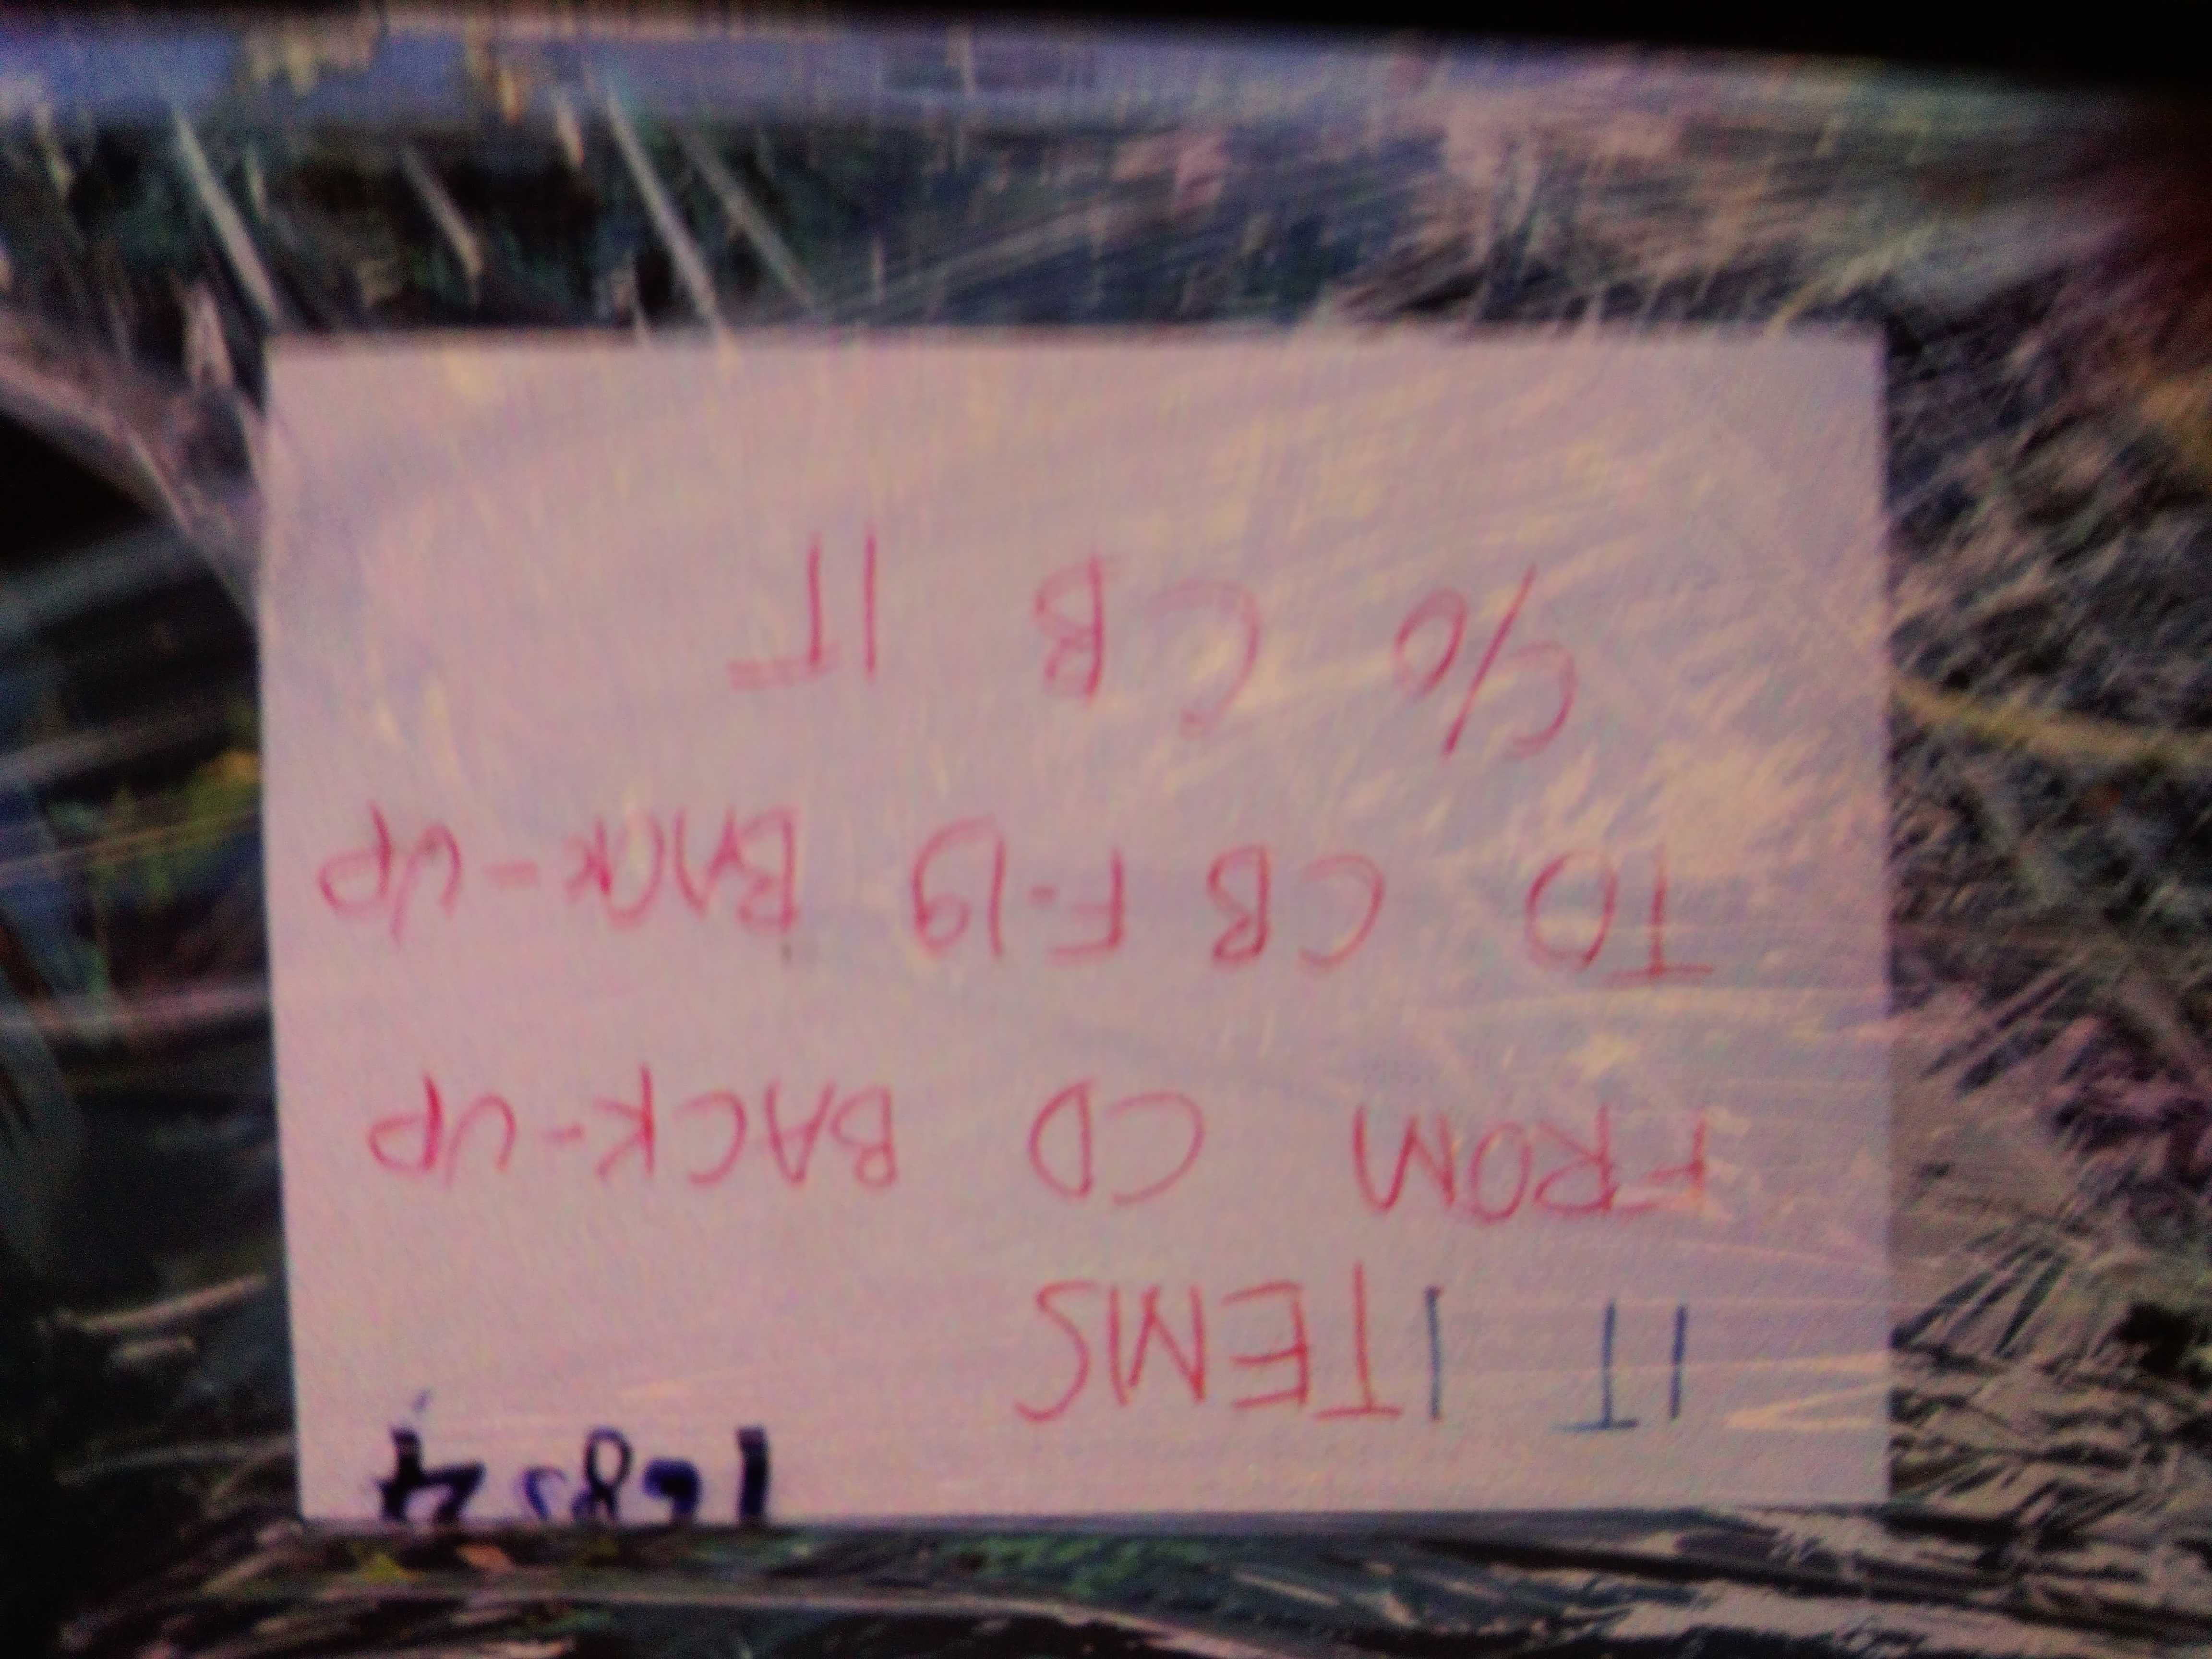 IT ITEMS
FROM CD BACK-UP
TO CB F-19 BACK-UP
C/O CB IT